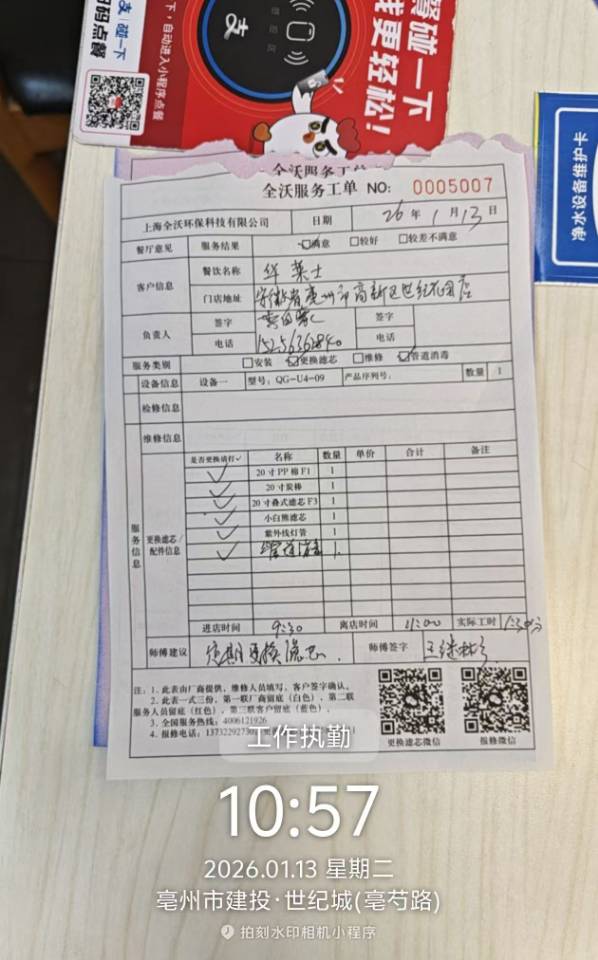 友 碰一下
扫码点餐
下，自动进入小程序点餐
支
感应区
碰一下
更轻松！
净水设备维护卡
全沃服务工单
全沃服务工单 NO: 0005007
上海全沃环保科技有限公司 日期 26年1月13日
餐厅意见 服务结果 ☑满意 □较好 □较差不满意
客户信息 餐饮名称 华莱士
门店地址 安徽省亳州市高新区世纪花园店
负责人 签字 签字
电话 15256362840 电话
服务类别 □安装 ☑更换滤芯 □维修 ☑管道消毒
设备信息 设备一 型号: QG-U4-09 产品序列号: 数量 1
检修信息
维修信息
服务信息 更换滤芯/配件信息
是否更换请打✓ 名称 数量 单价 合计 备注
✓ 20寸PP棉F1 1
✓ 20寸炭棒 1
✓ 20寸叠式滤芯F3 1
✓ 小白熊滤芯 1
✓ 紫外线灯管 1
✓ 管道消毒 1.
进店时间 9:30 离店时间 11:00 实际工时 1:30分
师傅建议 定期更换滤芯. 师傅签字
注: 1. 此表由厂商提供, 维修人员填写, 客户签字确认。
2. 此表一式三份, 第一联厂商留底(白色)、第二联
服务人员留底(红色)、第三联客户留底(蓝色)。
3. 全国服务热线: 4006121926
4. 报修电话: 1373229273
更换滤芯微信 报修微信
工作执勤
10:57
2026.01.13 星期二
亳州市建投·世纪城(亳芍路)
拍刻水印相机小程序